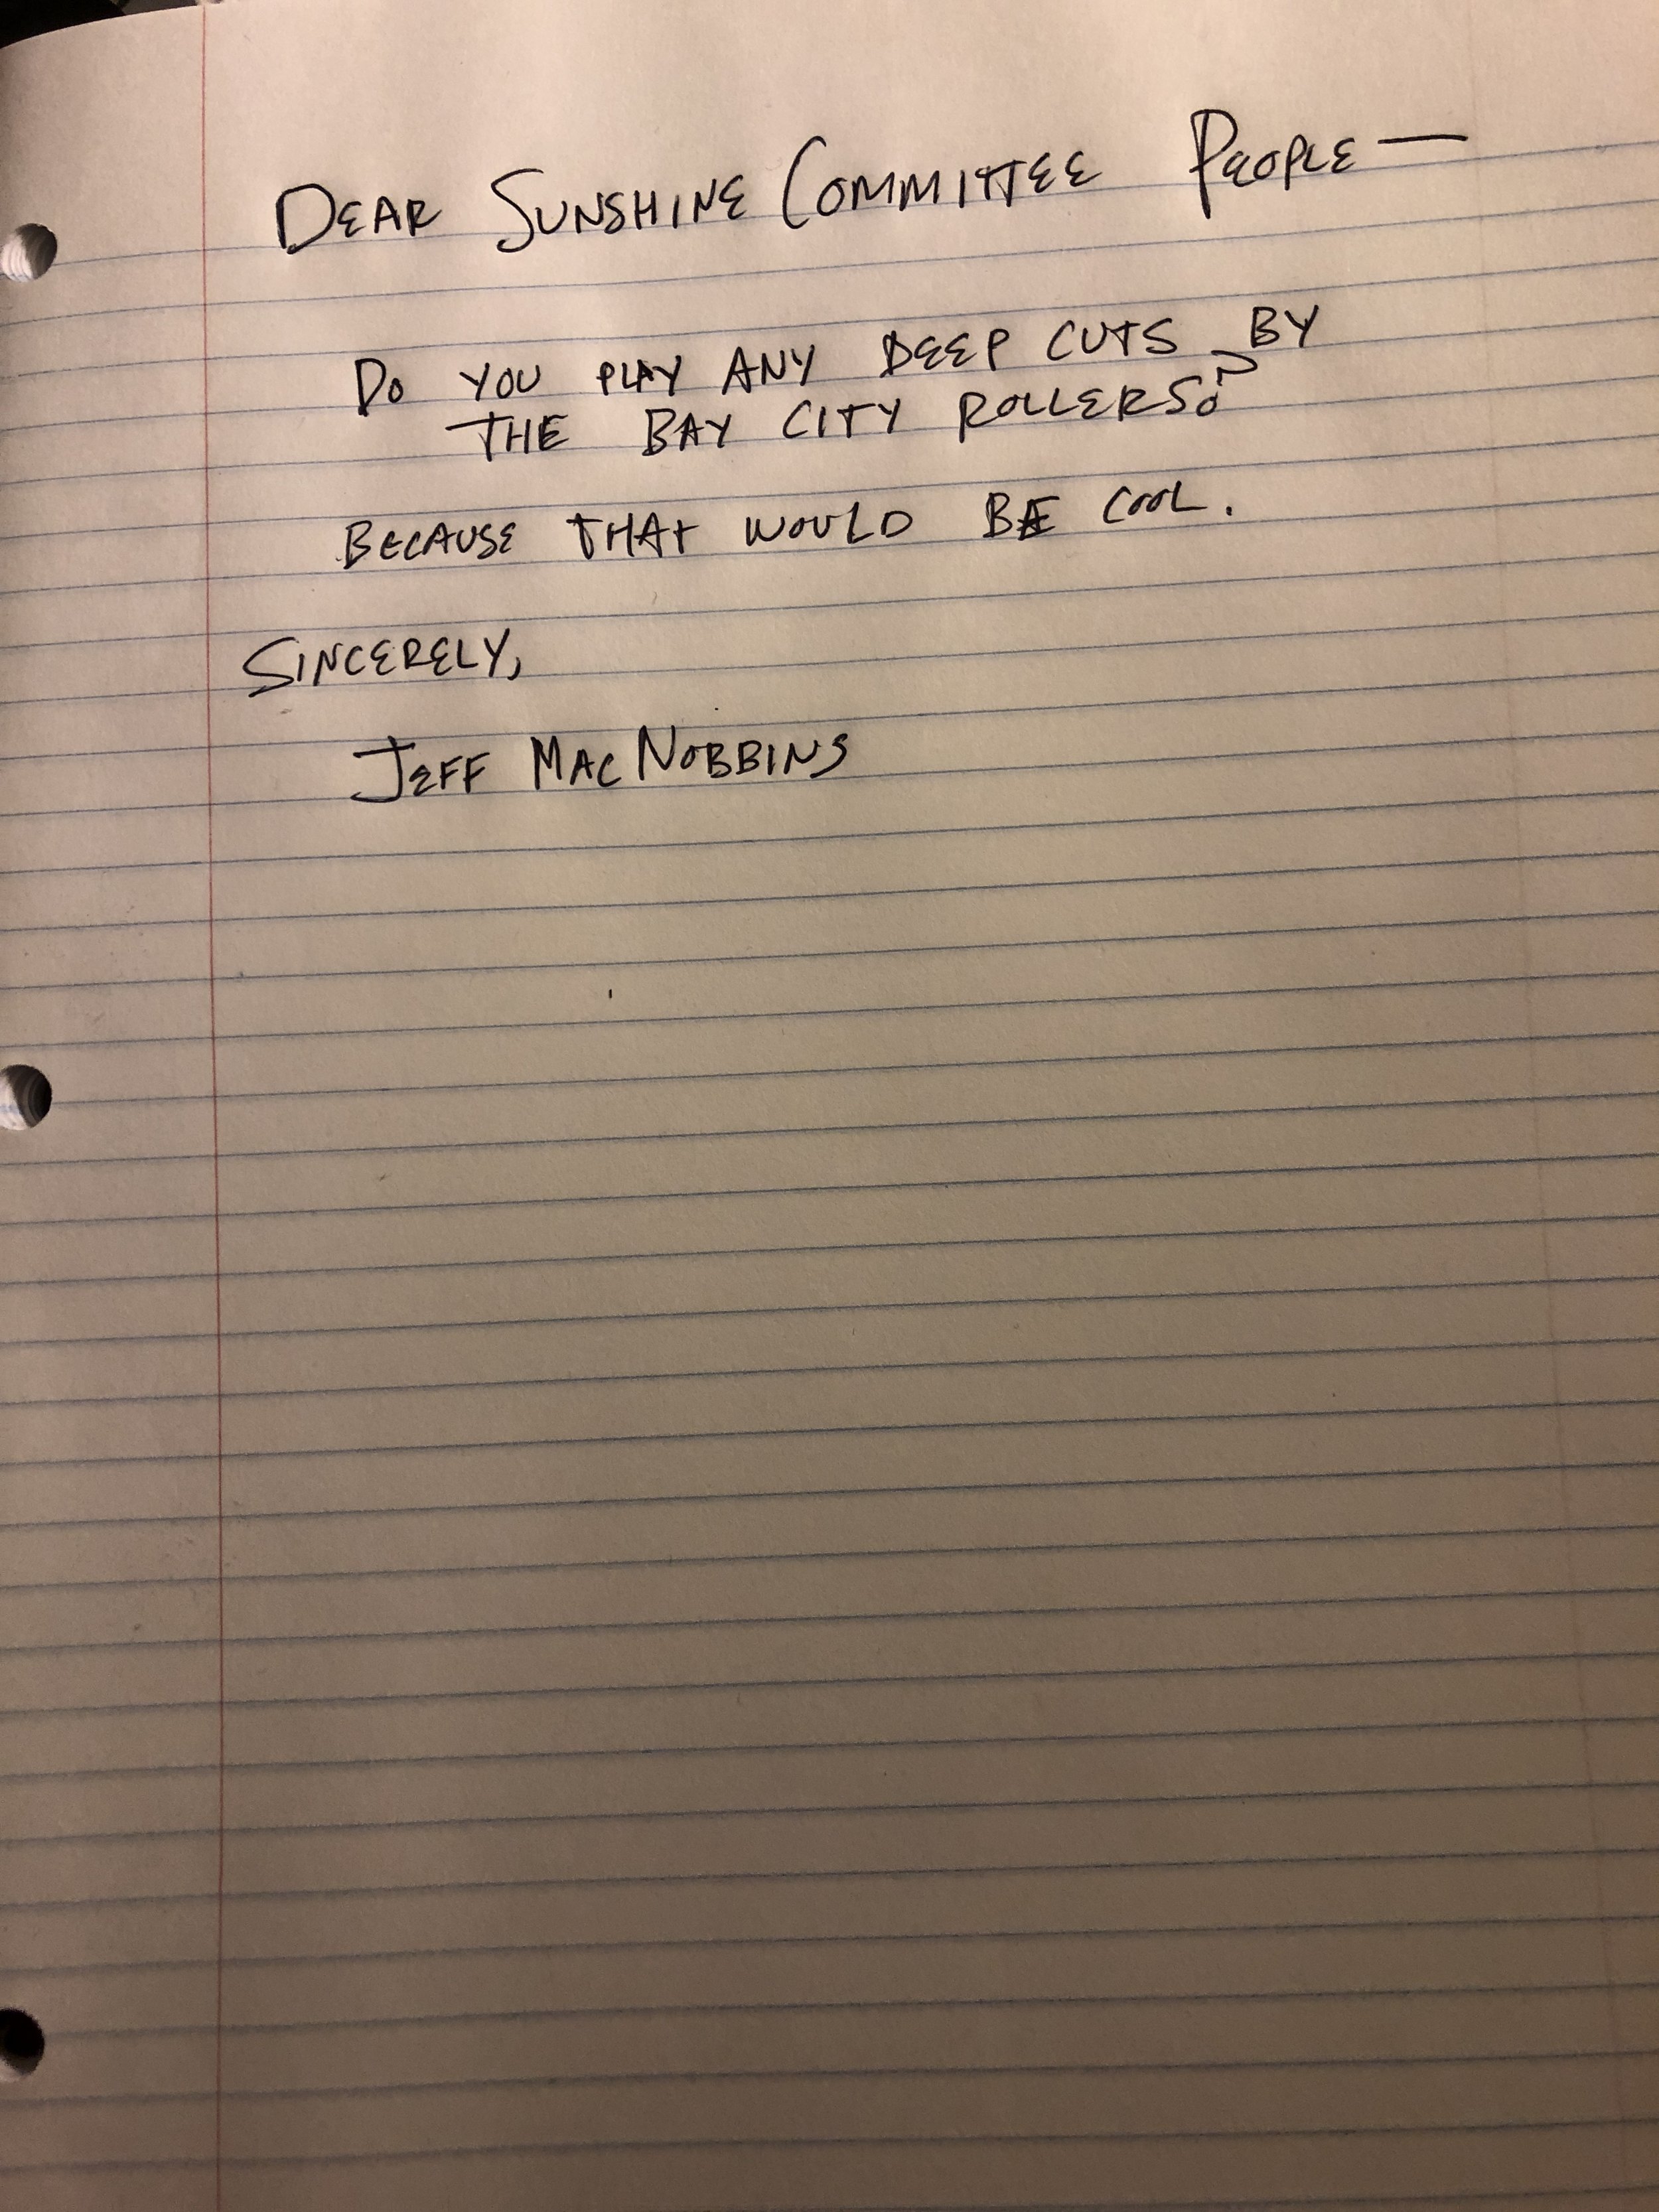 DEAR SUNSHINE COMMITTEE PEOPLE—
DO YOU PLAY ANY DEEP CUTS BY
THE BAY CITY ROLLERS?
BECAUSE THAT WOULD BE COOL.
SINCERELY,
JEFF MACNOBBINS